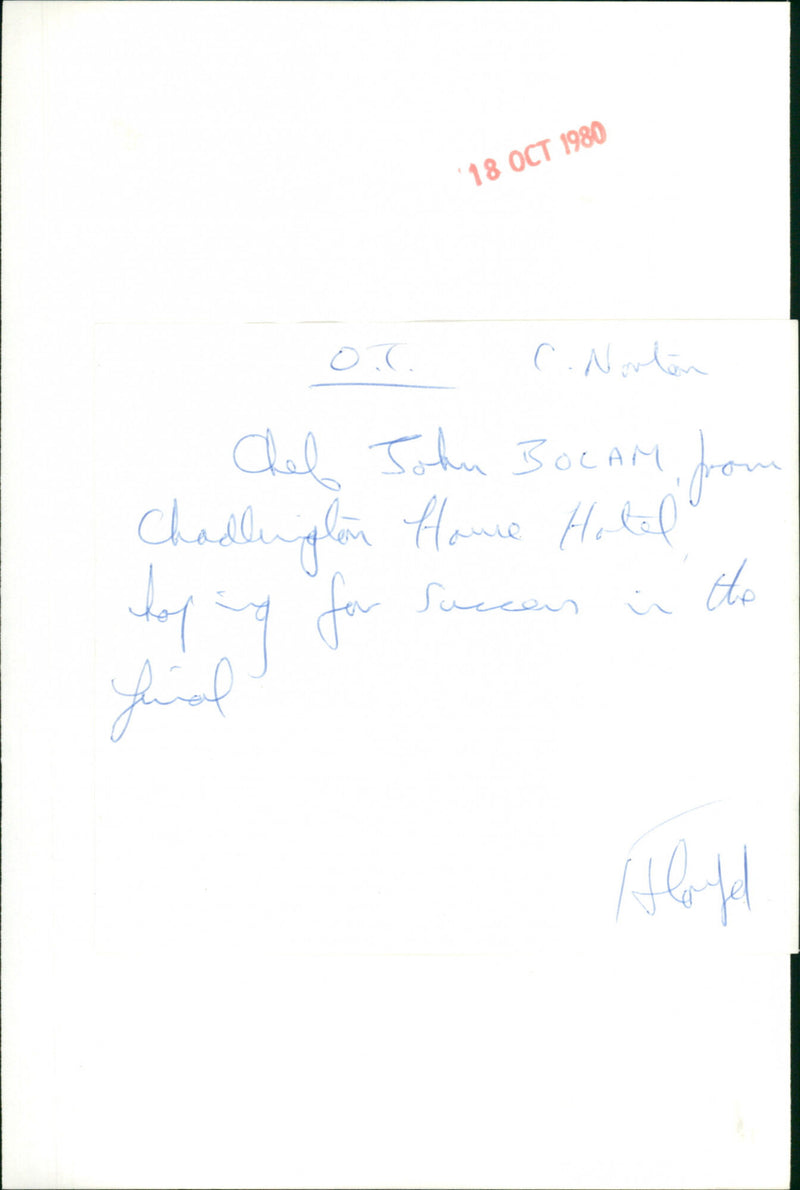 18 OCT 1980
O.T. C. Norton
Chef John BOLAM, from
Chadlington House Hotel,
hoping for success in the
final
Floyd